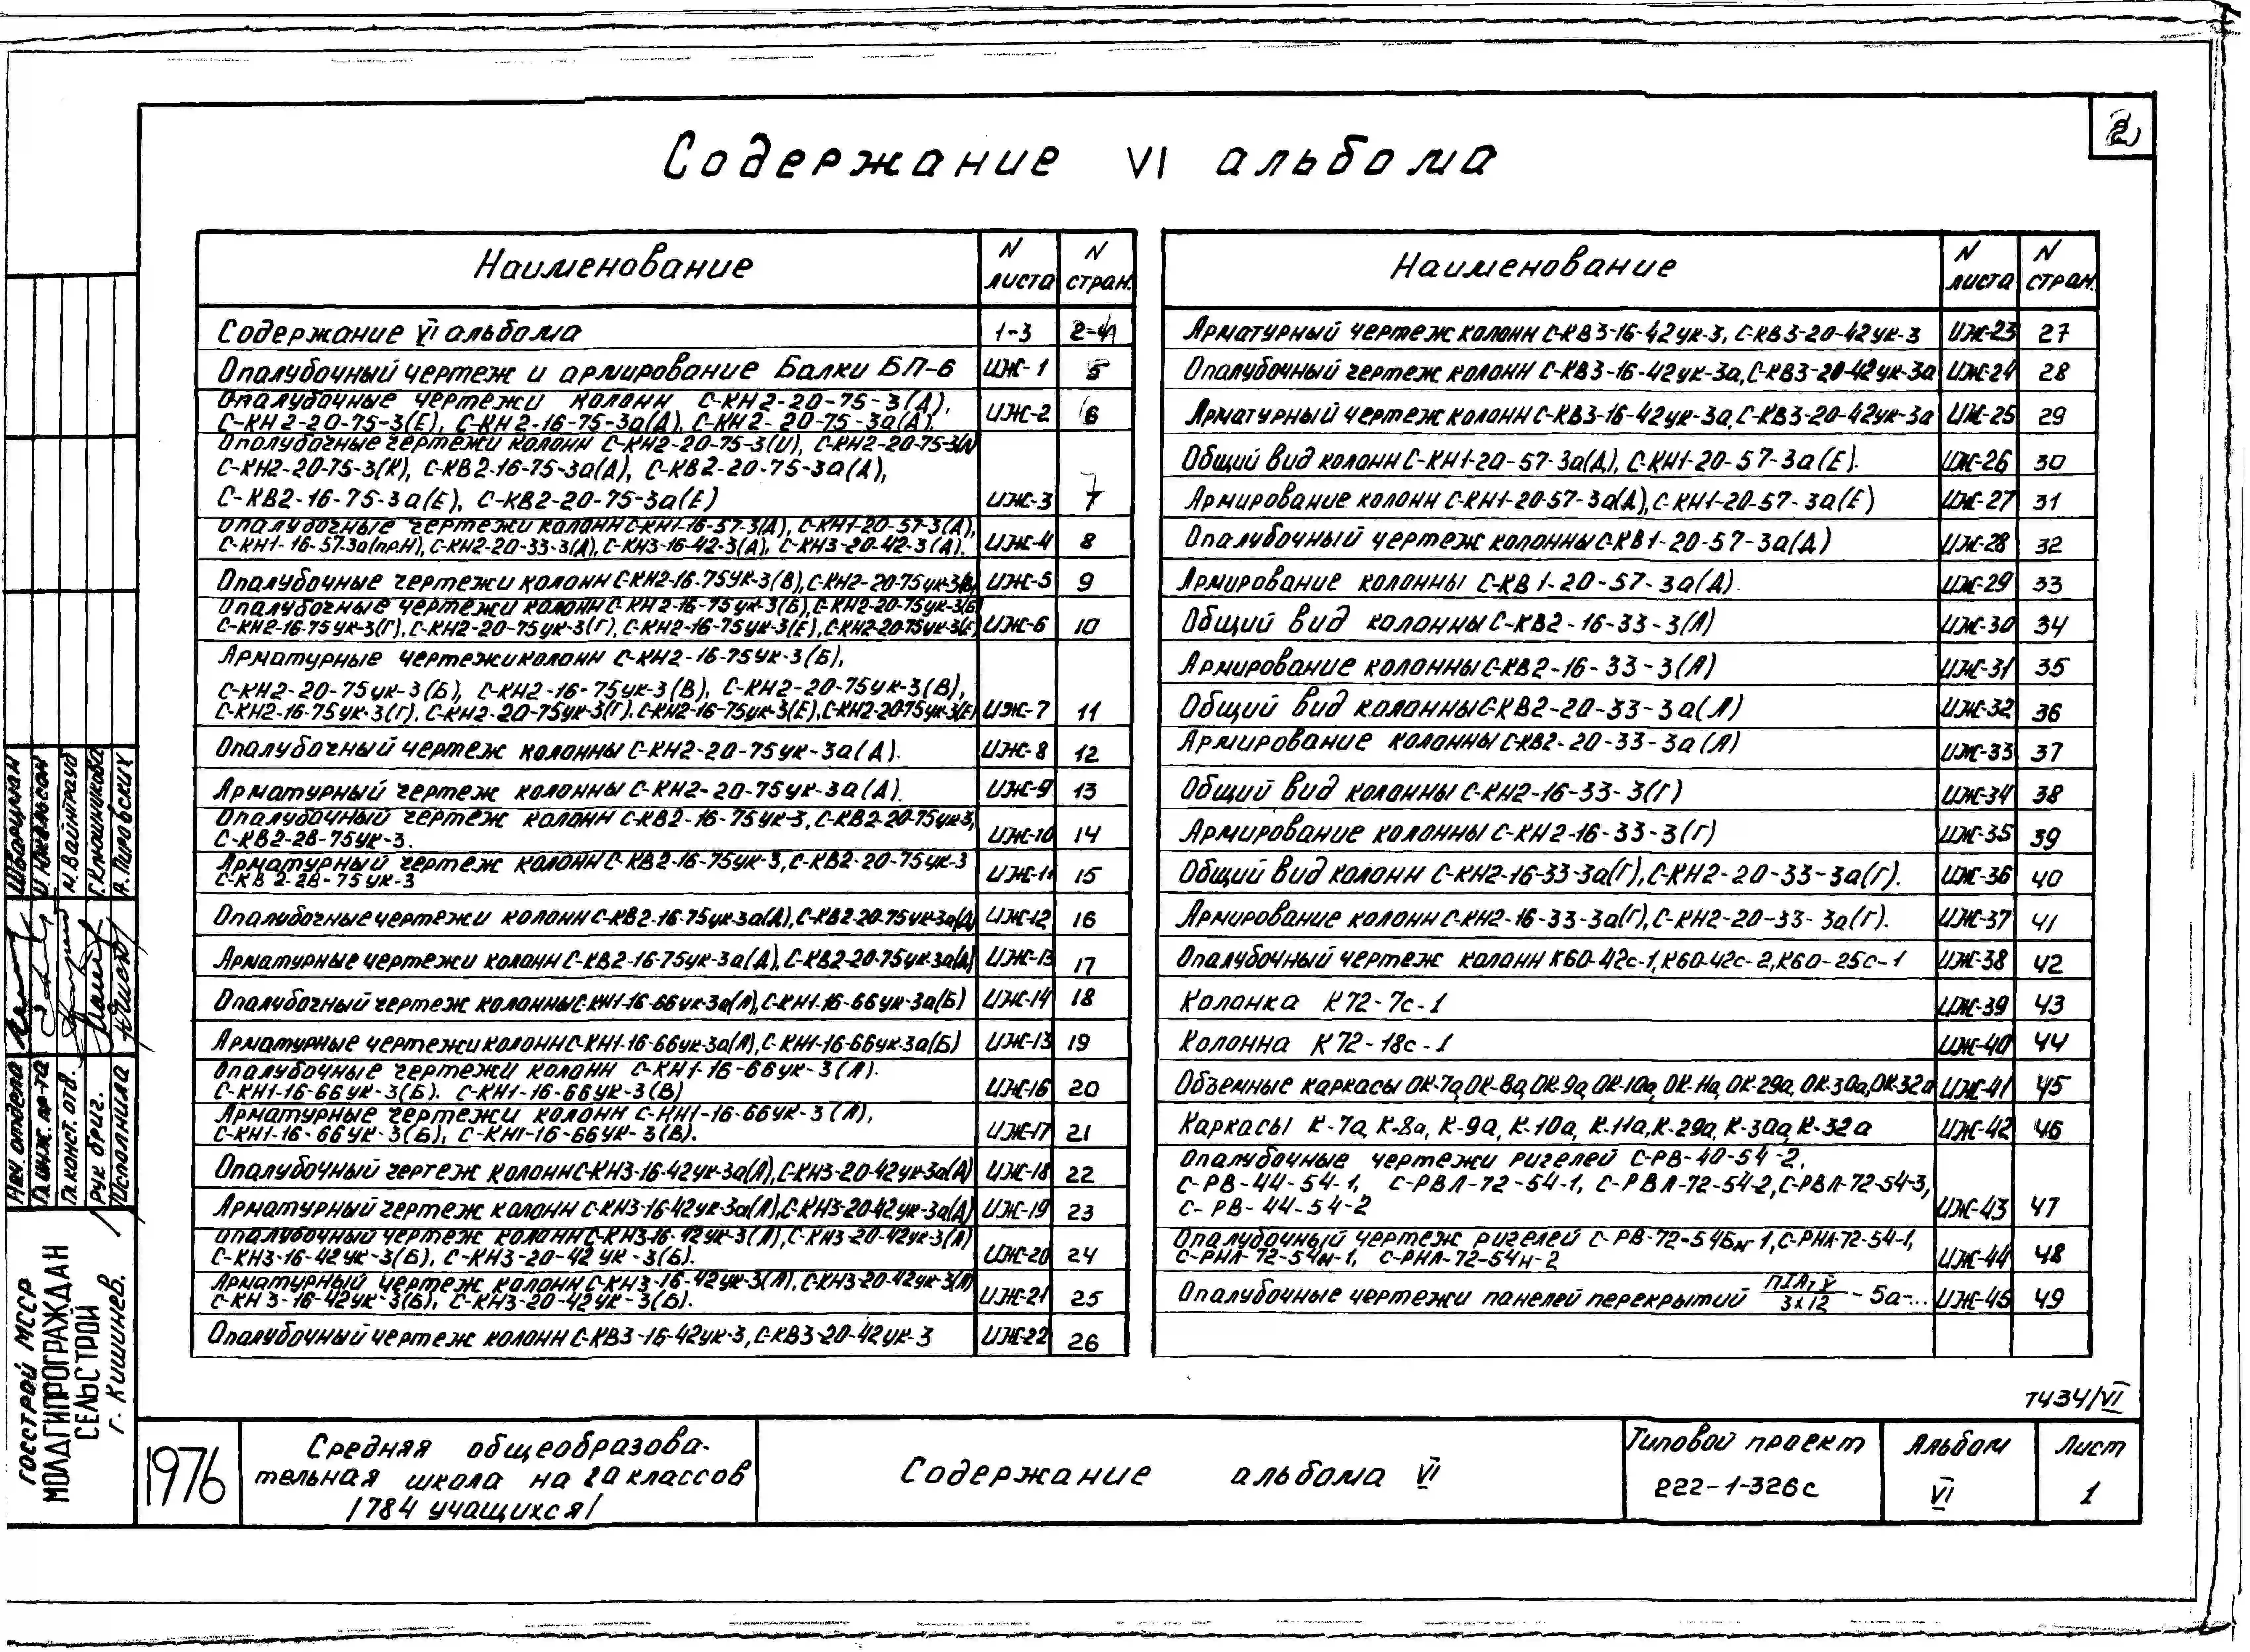 2
Содержание VI альбома
Наименование N листа N стран.
Содержание VI альбома 1-3 2-4
Опалубочный чертеж и армирование Балки БП-6 ИЖ-1 5
Опалубочные чертежи колонн С-КН2-20-75-3(А),
С-КН2-20-75-3(Е), С-КН2-16-75-3а(А), С-КН2-20-75-3а(А). ИЖ-2 6
Опалубочные чертежи колонн С-КН2-20-75-3(И), С-КН2-20-75-3(Л)
С-КН2-20-75-3(К), С-КВ2-16-75-3а(А), С-КВ2-20-75-3а(А),
С-КВ2-16-75-3а(Е), С-КВ2-20-75-3а(Е) ИЖ-3 7
Опалубочные чертежи колонн С-КН1-16-57-3(А), С-КН1-20-57-3(А),
С-КН1-16-57-3а(пр.Н), С-КН2-20-33-3(А), С-КН3-16-42-3(А), С-КН3-20-42-3(А). ИЖ-4 8
Опалубочные чертежи колонн С-КН2-16-75ук-3(В), С-КН2-20-75ук-3(В) ИЖ-5 9
Опалубочные чертежи колонн С-КН2-16-75ук-3(Б), С-КН2-20-75ук-3(Б)
С-КН2-16-75ук-3(Г), С-КН2-20-75ук-3(Г), С-КН2-16-75ук-3(Е), С-КН2-20-75ук-3(Е) ИЖ-6 10
Арматурные чертежи колонн С-КН2-16-75ук-3(Б),
С-КН2-20-75ук-3(Б), С-КН2-16-75ук-3(В), С-КН2-20-75ук-3(В),
С-КН2-16-75ук-3(Г), С-КН2-20-75ук-3(Г), С-КН2-16-75ук-3(Е), С-КН2-20-75ук-3(Е) ИЖ-7 11
Опалубочный чертеж колонны С-КН2-20-75ук-3а(А). ИЖ-8 12
Арматурный чертеж колонны С-КН2-20-75ук-3а(А). ИЖ-9 13
Опалубочный чертеж колонн С-КВ2-16-75ук-3, С-КВ2-20-75ук-3,
С-КВ2-28-75ук-3. ИЖ-10 14
Арматурный чертеж колонн С-КВ2-16-75ук-3, С-КВ2-20-75ук-3
С-КВ2-28-75ук-3 ИЖ-11 15
Опалубочные чертежи колонн С-КВ2-16-75ук-3а(А), С-КВ2-20-75ук-3а(А) ИЖ-12 16
Арматурные чертежи колонн С-КВ2-16-75ук-3а(А), С-КВ2-20-75ук-3а(А) ИЖ-13 17
Опалубочный чертеж колонны С-КН1-16-66ук-3а(А), С-КН1-16-66ук-3а(Б) ИЖ-14 18
Арматурные чертежи колонн С-КН1-16-66ук-3а(А), С-КН1-16-66ук-3а(Б) ИЖ-13 19
Опалубочные чертежи колонн С-КН1-16-66ук-3(А).
С-КН1-16-66ук-3(Б). С-КН1-16-66ук-3(В) ИЖ-16 20
Арматурные чертежи колонн С-КН1-16-66ук-3(А),
С-КН1-16-66ук-3(Б), С-КН1-16-66ук-3(В). ИЖ-17 21
Опалубочный чертеж колонн С-КН3-16-42ук-3а(А), С-КН3-20-42ук-3а(А) ИЖ-18 22
Арматурный чертеж колонн С-КН3-16-42ук-3а(А), С-КН3-20-42ук-3а(А) ИЖ-19 23
Опалубочный чертеж колонн С-КН3-16-42ук-3(А), С-КН3-20-42ук-3(А)
С-КН3-16-42ук-3(Б), С-КН3-20-42ук-3(Б). ИЖ-20 24
Арматурный чертеж колонн С-КН3-16-42ук-3(А), С-КН3-20-42ук-3(А)
С-КН3-16-42ук-3(Б), С-КН3-20-42ук-3(Б). ИЖ-21 25
Опалубочный чертеж колонн С-КВ3-16-42ук-3, С-КВ3-20-42ук-3 ИЖ-22 26
Наименование N листа N стран.
Арматурный чертеж колонн С-КВ3-16-42ук-3, С-КВ3-20-42ук-3 ИЖ-23 27
Опалубочный чертеж колонн С-КВ3-16-42ук-3а, С-КВ3-20-42ук-3а ИЖ-24 28
Арматурный чертеж колонн С-КВ3-16-42ук-3а, С-КВ3-20-42ук-3а ИЖ-25 29
Общий вид колонн С-КН1-20-57-3а(А), С-КН1-20-57-3а(Е). ИЖ-26 30
Армирование колонн С-КН1-20-57-3а(А), С-КН1-20-57-3а(Е) ИЖ-27 31
Опалубочный чертеж колонны С-КВ1-20-57-3а(А) ИЖ-28 32
Армирование колонны С-КВ1-20-57-3а(А). ИЖ-29 33
Общий вид колонны С-КВ2-16-33-3(А) ИЖ-30 34
Армирование колонны С-КВ2-16-33-3(А) ИЖ-31 35
Общий вид колонны С-КВ2-20-33-3а(А) ИЖ-32 36
Армирование колонны С-КВ2-20-33-3а(А) ИЖ-33 37
Общий вид колонны С-КН2-16-33-3(Г) ИЖ-34 38
Армирование колонны С-КН2-16-33-3(Г) ИЖ-35 39
Общий вид колонн С-КН2-16-33-3а(Г), С-КН2-20-33-3а(Г). ИЖ-36 40
Армирование колонн С-КН2-16-33-3а(Г), С-КН2-20-33-3а(Г). ИЖ-37 41
Опалубочный чертеж колонн К60-42с-1, К60-42с-2, К60-25с-1 ИЖ-38 42
Колонка К72-7с-1 ИЖ-39 43
Колонна К72-18с-1 ИЖ-40 44
Объемные каркасы ОК-7а, ОК-8а, ОК-9а, ОК-10а, ОК-11а, ОК-29а, ОК-30а, ОК-32а ИЖ-41 45
Каркасы К-7а, К-8а, К-9а, К-10а, К-11а, К-29а, К-30а, К-32а ИЖ-42 46
Опалубочные чертежи ригелей С-РВ-40-54-2,
С-РВ-44-54-1, С-РВЛ-72-54-1, С-РВЛ-72-54-2, С-РВЛ-72-54-3,
С-РВ-44-54-2 ИЖ-43 47
Опалубочный чертеж ригелей С-РВ-72-54Бм-1, С-РНЛ-72-54-1,
С-РНЛ-72-54н-1, С-РНЛ-72-54н-2 ИЖ-44 48
Опалубочные чертежи панелей перекрытий ПIАтV/3х12 - 5а-... ИЖ-45 49
1434/VI
Нач. отдела Шварцман
Гл. инж. пр-та И. Никельсон
Гл. конст. отд. М. Вайнтрауб
Рук. бриг. Г. Клюшникова
Исполнила А. Пировских
ГОССТРОЙ МССР
МОЛДГИПРОГРАЖДАН
СЕЛЬСТРОЙ
г. Кишинев.
1976
Средняя общеобразова-
тельная школа на 20 классов
/784 учащихся/
Содержание альбома VI
Типовой проект
222-1-326с
Альбом
VI
Лист
1